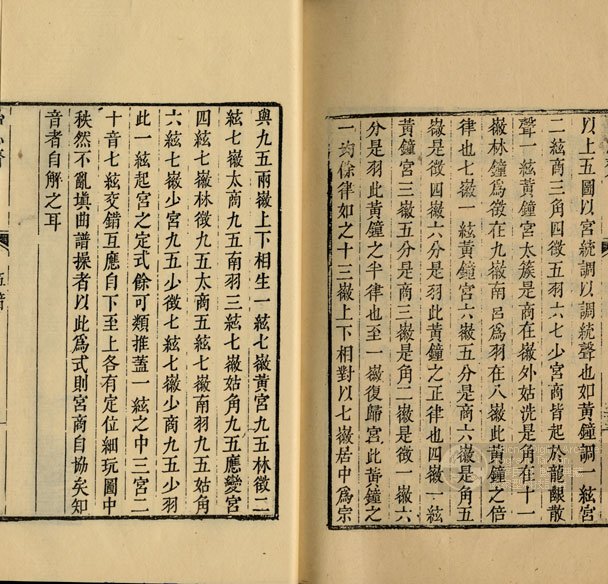 以上五圖以宮統調以調統聲也如黃鐘調一絃宮
二絃商三角四徵五羽六七少宮商皆起於龍齦散
聲一絃黃鐘宮太簇是商在徽外姑洗是角在十一
徽林鐘爲徵在九徽南呂爲羽在八徽此黃鐘之倍
律也七徽一絃黃鐘宮六徽五分是商六徽是角五
徽是徵四徽六分是羽此黃鐘之正律也四徽一絃
黃鐘宮三徽五分是商三徽是角二徽是徵一徽六
分是羽此黃鐘之半律也至一徽復歸宮此黃鐘之
一均餘律如之十三徽上下相對以七徽居中爲宗
與九五兩徽上下相生一絃七徽黃宮九五林徵二
絃七徽太商九五南羽三絃七徽姑角九五應變宮
四絃七徽林徵九五太商五絃七徽南羽九五姑角
六絃七徽少宮九五少徵七絃七徽少商九五少羽
此一絃起宮之定式餘可類推蓋一絃之中三宮二
十音七絃交錯互應自下至上各有定位細玩圖中
秩然不亂填曲譜操者以此爲式則宮商自協矣知
音者自解之耳
五音